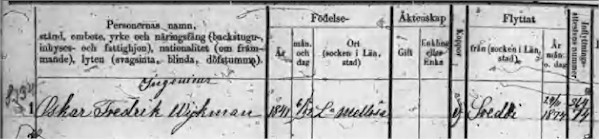 Personernas namn,
stånd, embete, yrke och näringsfång (backstugu-
inhyses- och fattighjon), nationalitet (om främ-
mande), lyten (svagsinta, blinda, döfstumma).
Födelse-
År
mån.
och
dag
Ort
(socken i Län,
stad).
Äktenskap
Gift
Enkling
eller
Enka
Koppor
Flyttat
från (socken i Län,
stad).
År
mån.
o. dag
Inflyttnings-
attestens nummer
Ingeniur
1 Oskar Fredrik Wijkman 1841 6/12 L:a Mellösa v Svedvi 29/1 1874